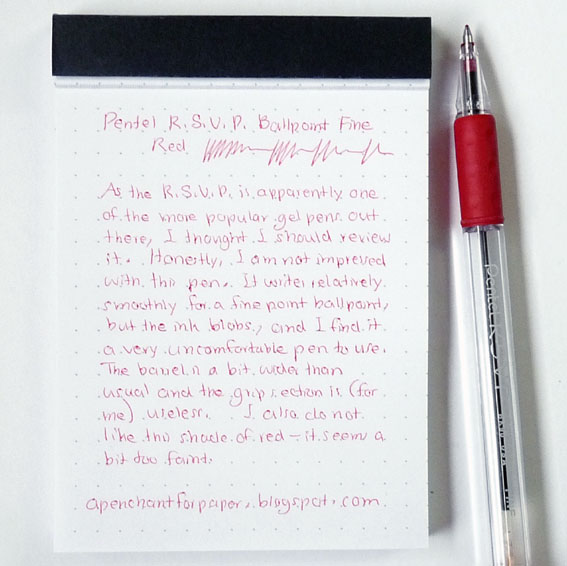 Pentel R.S.V.P. Ballpoint Fine
Red
As the R.S.V.P. is apparently one
of the more popular gel pens out
there, I thought I should review
it. Honestly, I am not impressed
with this pen. It writes relatively
smoothly for a fine point ballpoint,
but the ink blobs, and I find it
a very uncomfortable pen to use.
The barrel is a bit wider than
usual and the grip section is (for
me) useless. I also do not
like this shade of red - it seems a
bit too faint.
apenchantforpaper.blogspot.com
Pentel R.S.V.P.